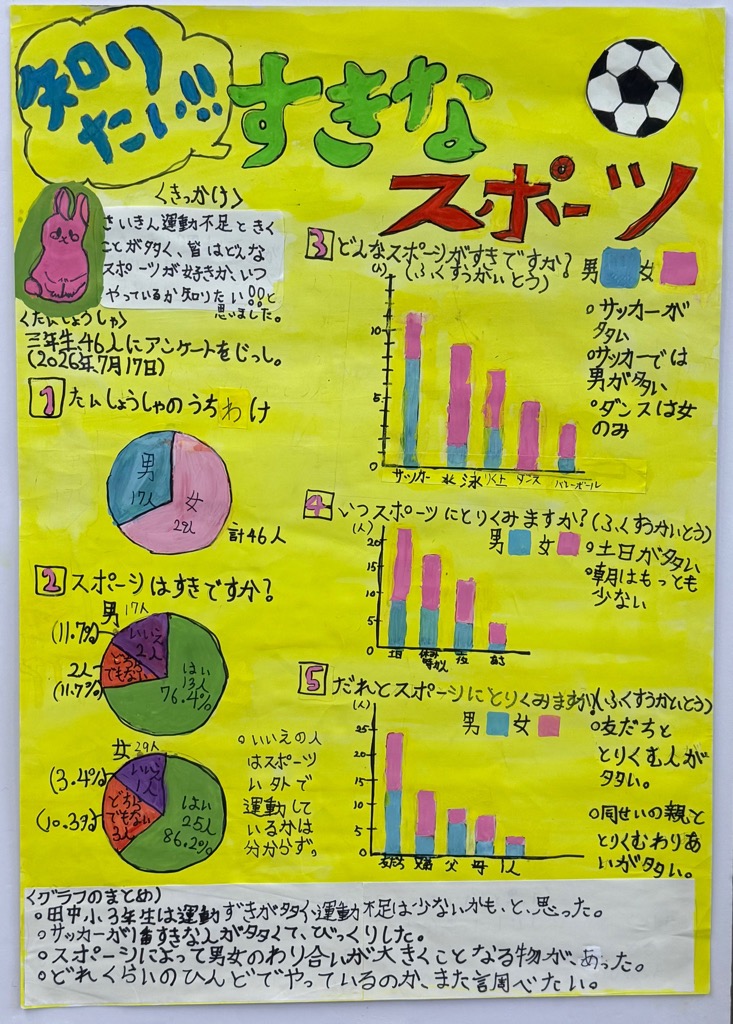 知りたい!!
すきな
スポーツ
〈きっかけ〉
さいきん運動不足ときく
ことが多く、皆はどんな
スポーツが好きか、いつ
やっているか知りたい!!と
思いました。
〈たいしょうしゃ〉
三年生46人にアンケートをじっし。
(2026年7月17日)
1 たいしょうしゃのうちわけ
男
17人
女
29人
計46人
2 スポーツはすきですか?
男 17人
(11.7%)
いいえ
2人
2人
(11.7%)
どちら
でもない
はい
13人
76.4%
女 29人
(3.4%)
いいえ
1人
(10.3%)
どちら
でもない
3人
はい
25人
86.2%
○いいえの人
はスポーツ
い外で
運動して
いるかは
分からず。
3 どんなスポーツがすきですか?
(ふくすうかいとう)
男 女
(人)
10
5
0
サッカー 水泳 ダンス バレーボール
○サッカーが
多い
○サッカーでは
男が多い
○ダンスは女
のみ
4 いつスポーツにとりくみますか?(ふくすうかいとう)
(人)
男 女
20
15
10
5
0
土日 休み時かん 夜 あさ
○土日が多い
○朝はもっとも
少ない
5 だれとスポーツにとりくみますか?(ふくすうかいとう)
(人)
男 女
25
20
15
10
5
0
友だち 父 母 1人
○友だちと
とりくむ人が
多い。
○同せいの親と
とりくむわりあ
いが多い。
〈グラフのまとめ〉
○田中小3年生は運動ずきが多く運動不足は少ないかも、と、思った。
○サッカーが1番すきな人が多くて、びっくりした。
○スポーツによって男女のわり合いが大きくことなる物が、あった。
○どれくらいのひんどでやっているのか、また調べたい。